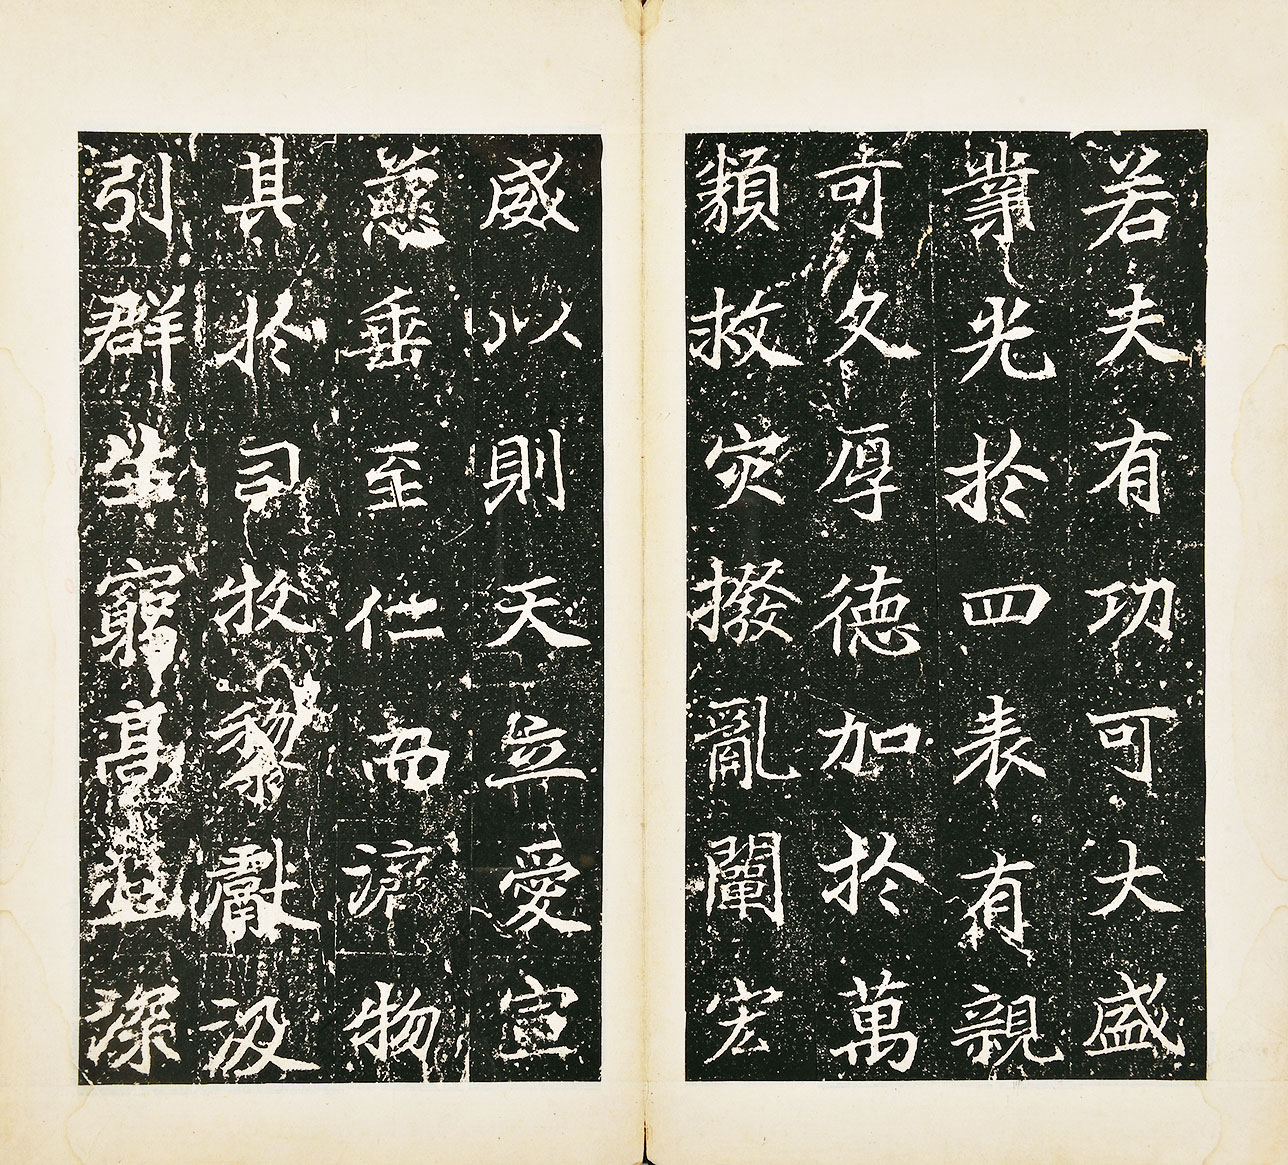 若夫有功可大盛
業光於四表有親
可久厚德加於萬
類救灾撥亂闡宏
威以則天立愛宣
慈垂至仁而濟物
其於司牧黎獻汲
引群生窮高深